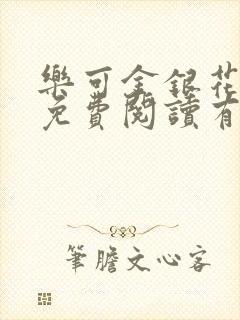 樂可金銀花
免費閱讀有
筆膽文心客